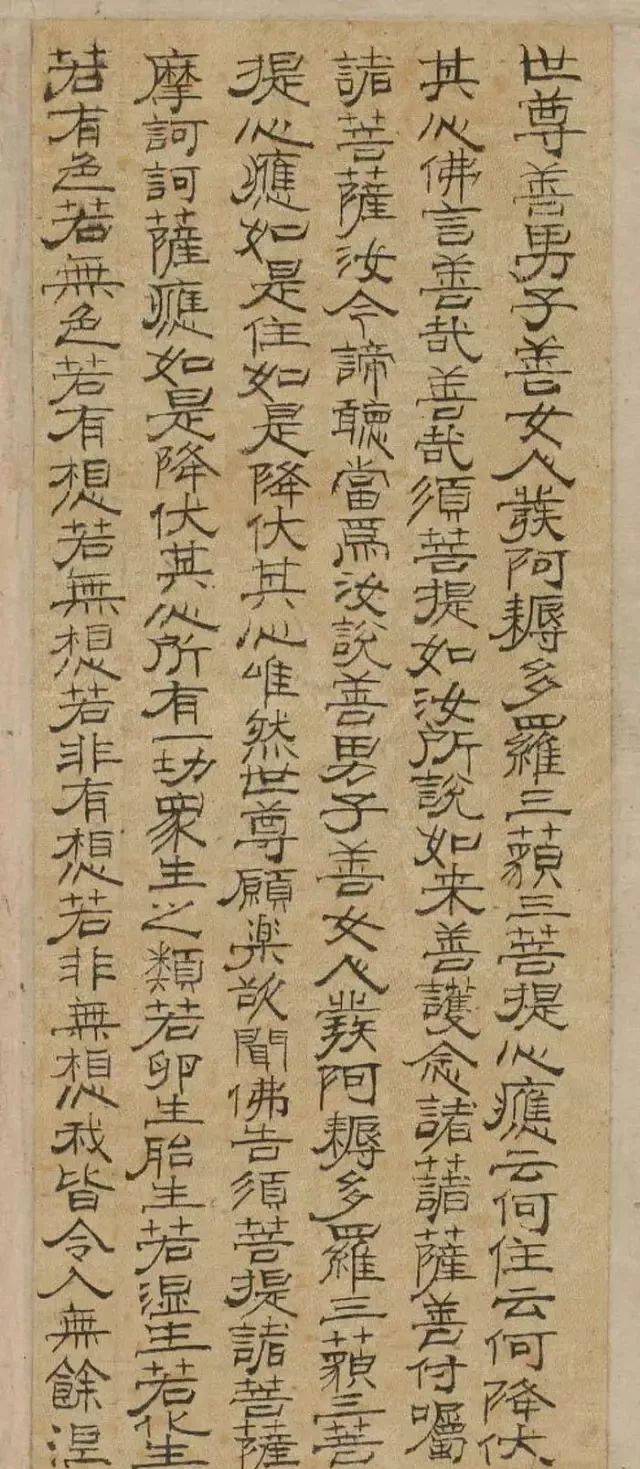 世尊善男子善女人發阿耨多羅三藐三菩提心應云何住云何降伏
其心佛言善哉善哉須菩提如汝所說如来善護念諸藷薩善付囑
諸菩薩汝今諦聽當爲汝說善男子善女人發阿耨多羅三藐三菩
提心應如是住如是降伏其心唯然世尊願楽欲聞佛告須菩提諸菩薩
摩訶訶薩應如是降伏其心所有一切衆生之類若卵生胎生若湿生若化生
若有色若無色若有想若無想若非有想若非無想我皆令入無餘涅